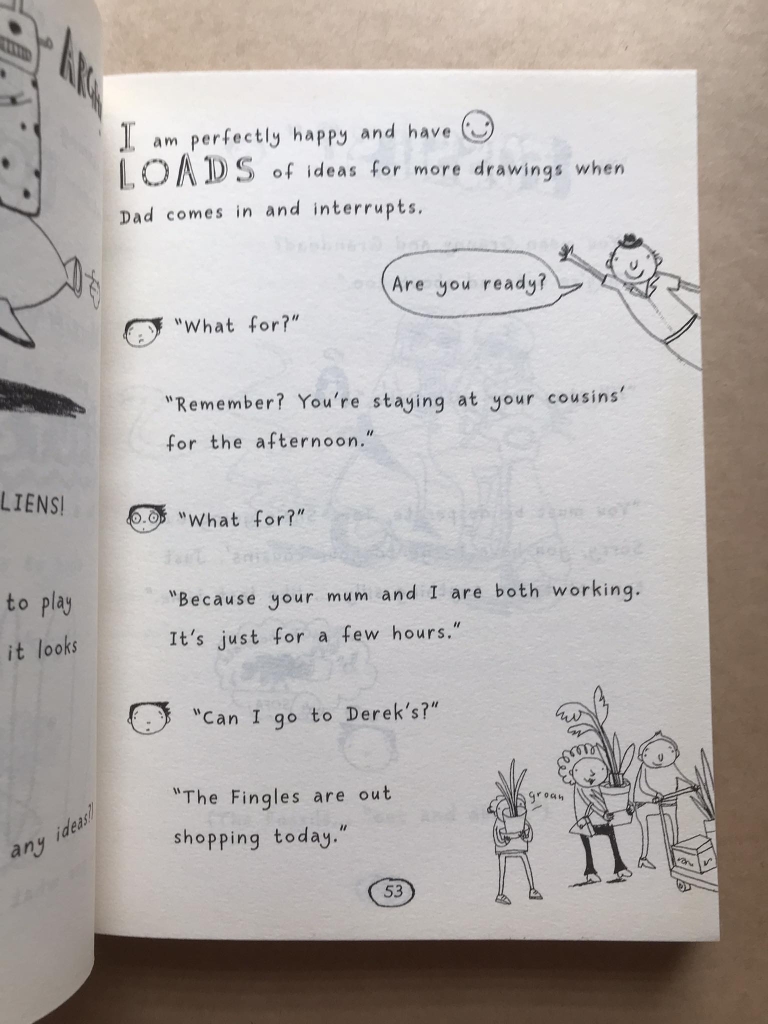 ARGH
LIENS!
to play
it looks
any ideas?!
I am perfectly happy and have
LOADS of ideas for more drawings when
Dad comes in and interrupts.
Are you ready?
"What for?"
"Remember? You're staying at your cousins'
for the afternoon."
"What for?"
"Because your mum and I are both working.
It's just for a few hours."
"Can I go to Derek's?"
"The Fingles are out
shopping today."
groan
53